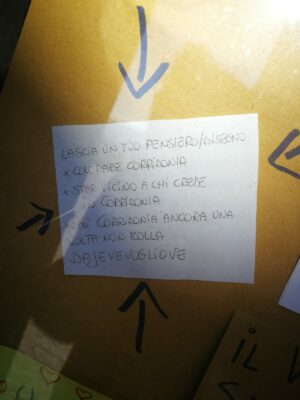 LASCIA UN TUO PENSIERO/DISEGNO
x COLORARE CORRIDONIA
x STAR VICINO A CHI CREDE
IN CORRIDONIA
CORRIDONIA ANCORA UNA
VOLTA NON MOLLA
DAJEVEVOGLIOVE
IL